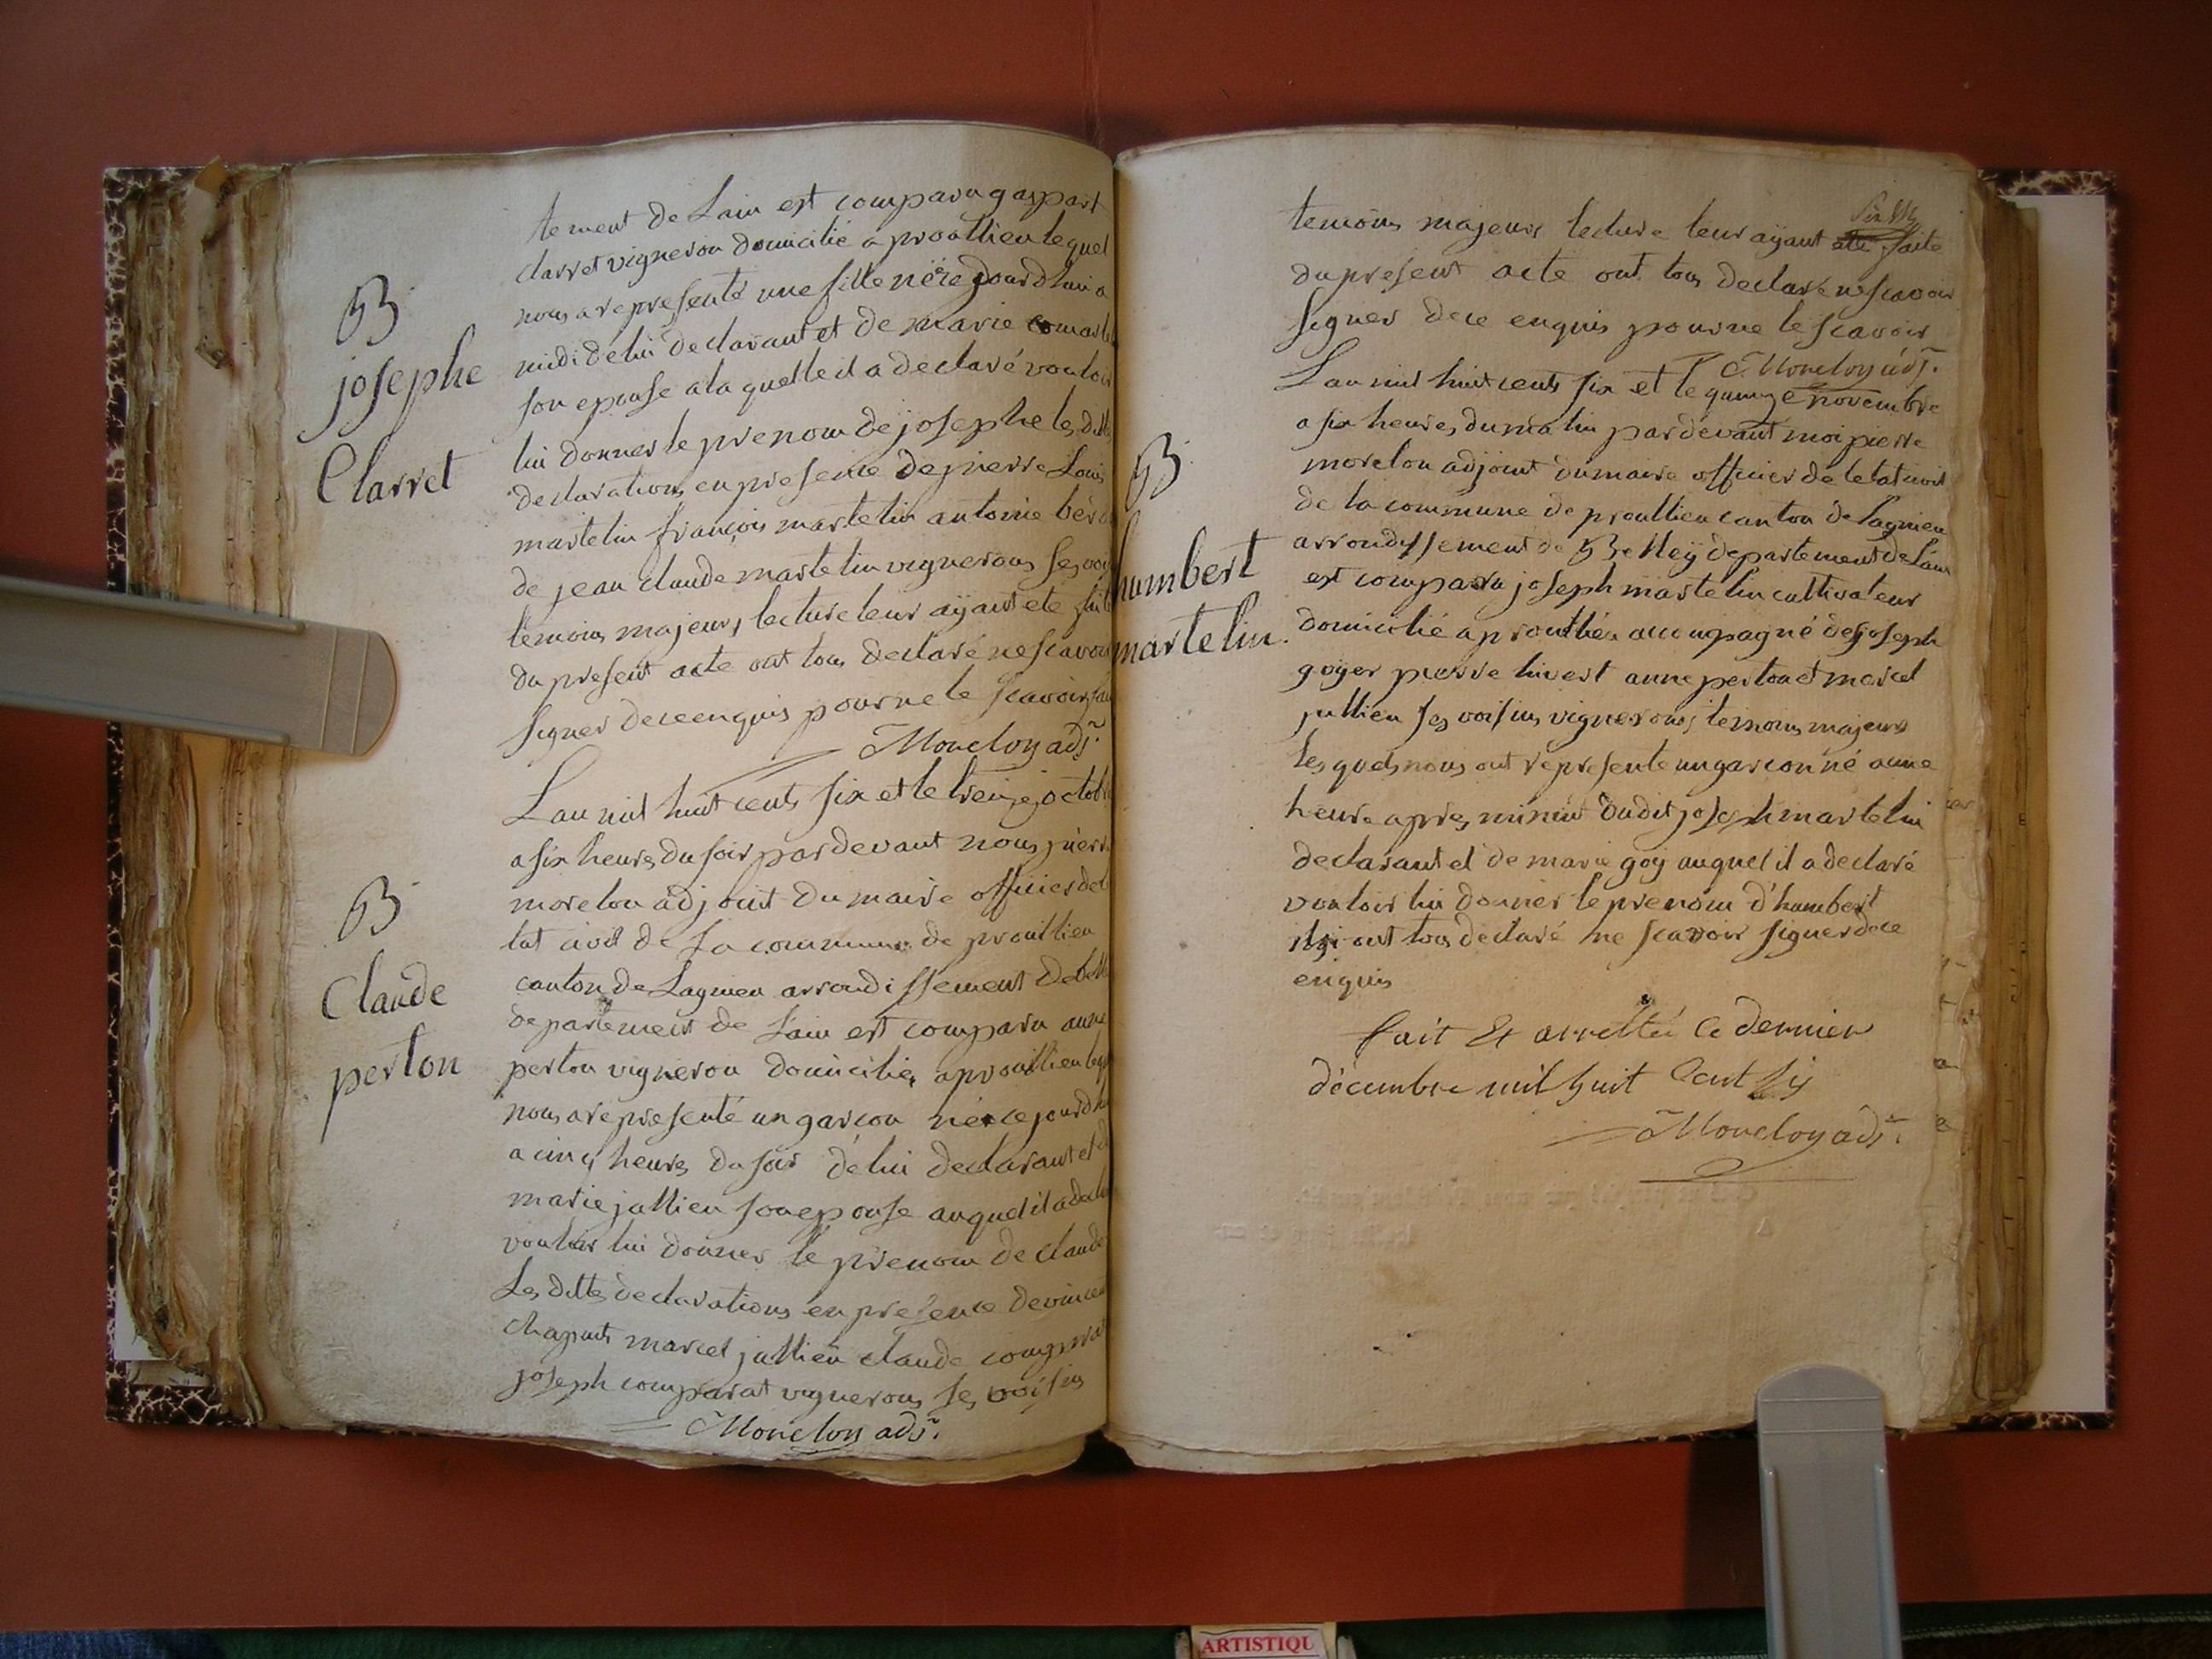 tement de Lain est comparu gaspart
clarret vigneron domicilié a proullieu lequel
nous a representé une fille née ce jourdhui a
midi de lui declarant et de marie
son epouse a la quelle il a declaré vouloir
lui donner le prenom de josephe les dittes
declarations en presence de pierre Louis
martelin françois martelin antoine
de jean claude martelin vignerons ses
temoins majeurs lecture leur aÿant ete faite
du present acte ont tous declaré ne scavoir
signer de ce enquis pour ne le scavoir
B
josephe
Clarret
Lan mil huit cents six et le treize octobre
a six heures du soir pardevant nous pierre
morelon adjoint du maire officier de
tat civil de la commune de proullieu
canton de Lagnieu arrondissement de
departement de Lain est comparu anne
perton vigneron domicilié a proullieu
nous a representé un garcon né ce jourdhui
a cinq heures du soir de lui declarant et
marie jullien son epouse auquel il a
vouloir lui donner le prenom de claude
Les dittes declarations en presence de vincent
chaput marcel jullien claude comparat
joseph comparat vignerons ses voisins
B
Claude
perton
temoins majeurs lecture leur aÿant ete faite
du present acte ont tous declaré ne scavoir
signer de ce enquis pour ne le scavoir
Lan mil huit cents six et le quinze novembre
a six heures du matin pardevant moi pierre
morelon adjoint du maire officier de letat civil
de la commune de proullieu canton de Lagnieu
arrondissement de Belleÿ departement de Lain
est comparu joseph martelin cultivateur
domicilié a proullieu accompagné de joseph
goÿer pierre anne perton et marcel
jullien ses voisins vignerons temoins majeurs
les quels nous ont representé un garcon né a une
heure apres minuit dudit joseph martelin
declarant et de marie goÿ auquel il a declaré
vouloir lui donner le prenom d'humbert
ont tous declaré ne scavoir signer de ce
enquis
B
humbert
martelin.
fait & arretté le dernier
décembre mil huit Cent six
ARTISTIQU